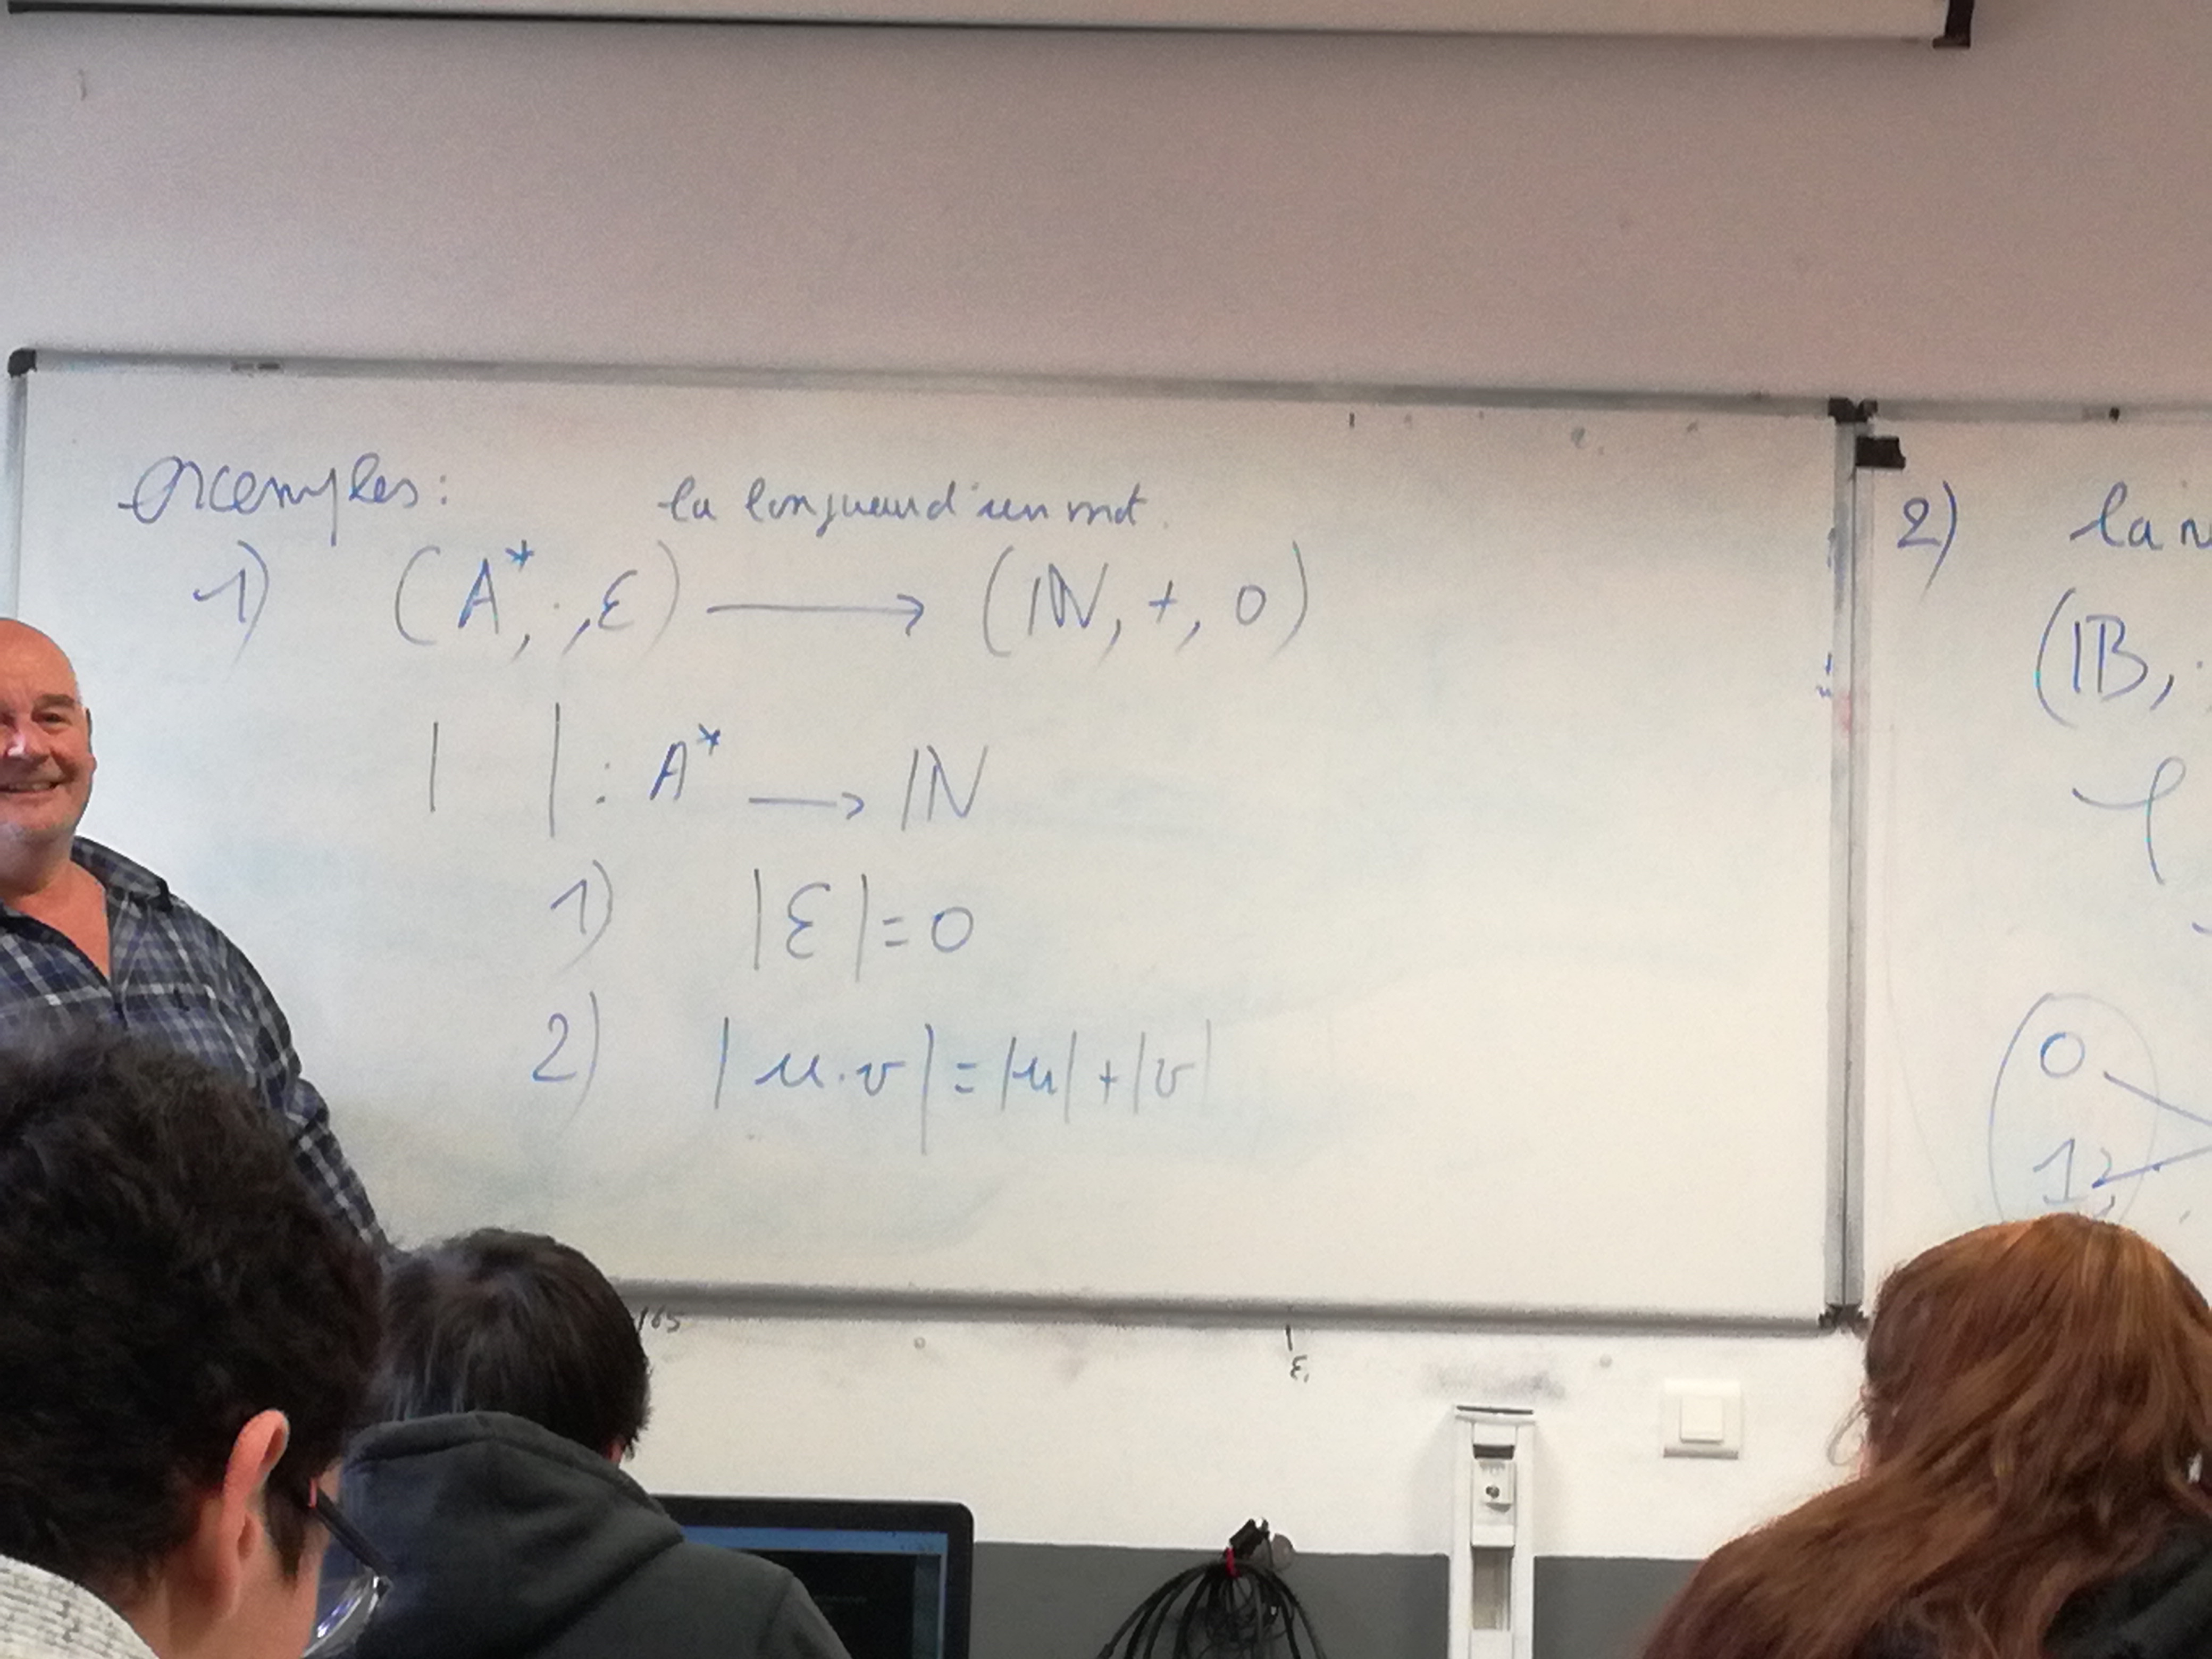 exemples:
la longueur d'un mot.
1) (A*, ·, ε) ⟶ (ℕ, +, 0)
| | : A* ⟶ ℕ
1) |ε| = 0
2) |u.v| = |u| + |v|
2) la
(𝔹, ·
φ
0
1